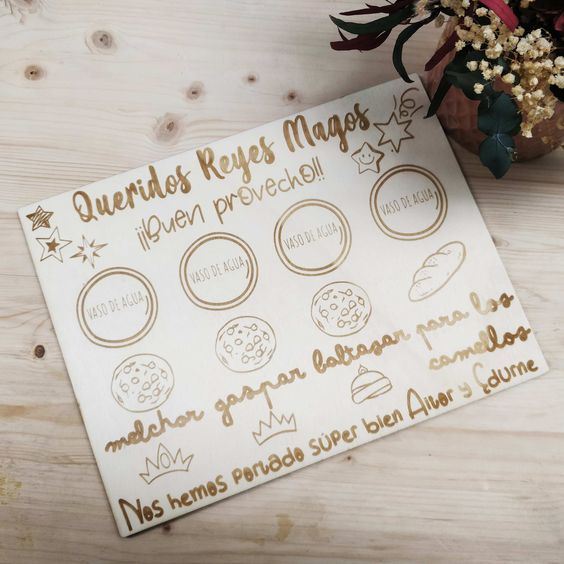 Queridos Reyes Magos
¡¡Buen provecho!!
VASO DE AGUA VASO DE AGUA VASO DE AGUA VASO DE AGUA
melchor gaspar baltasar para los
camellos
Nos hemos portado súper bien Aitor y Edurne